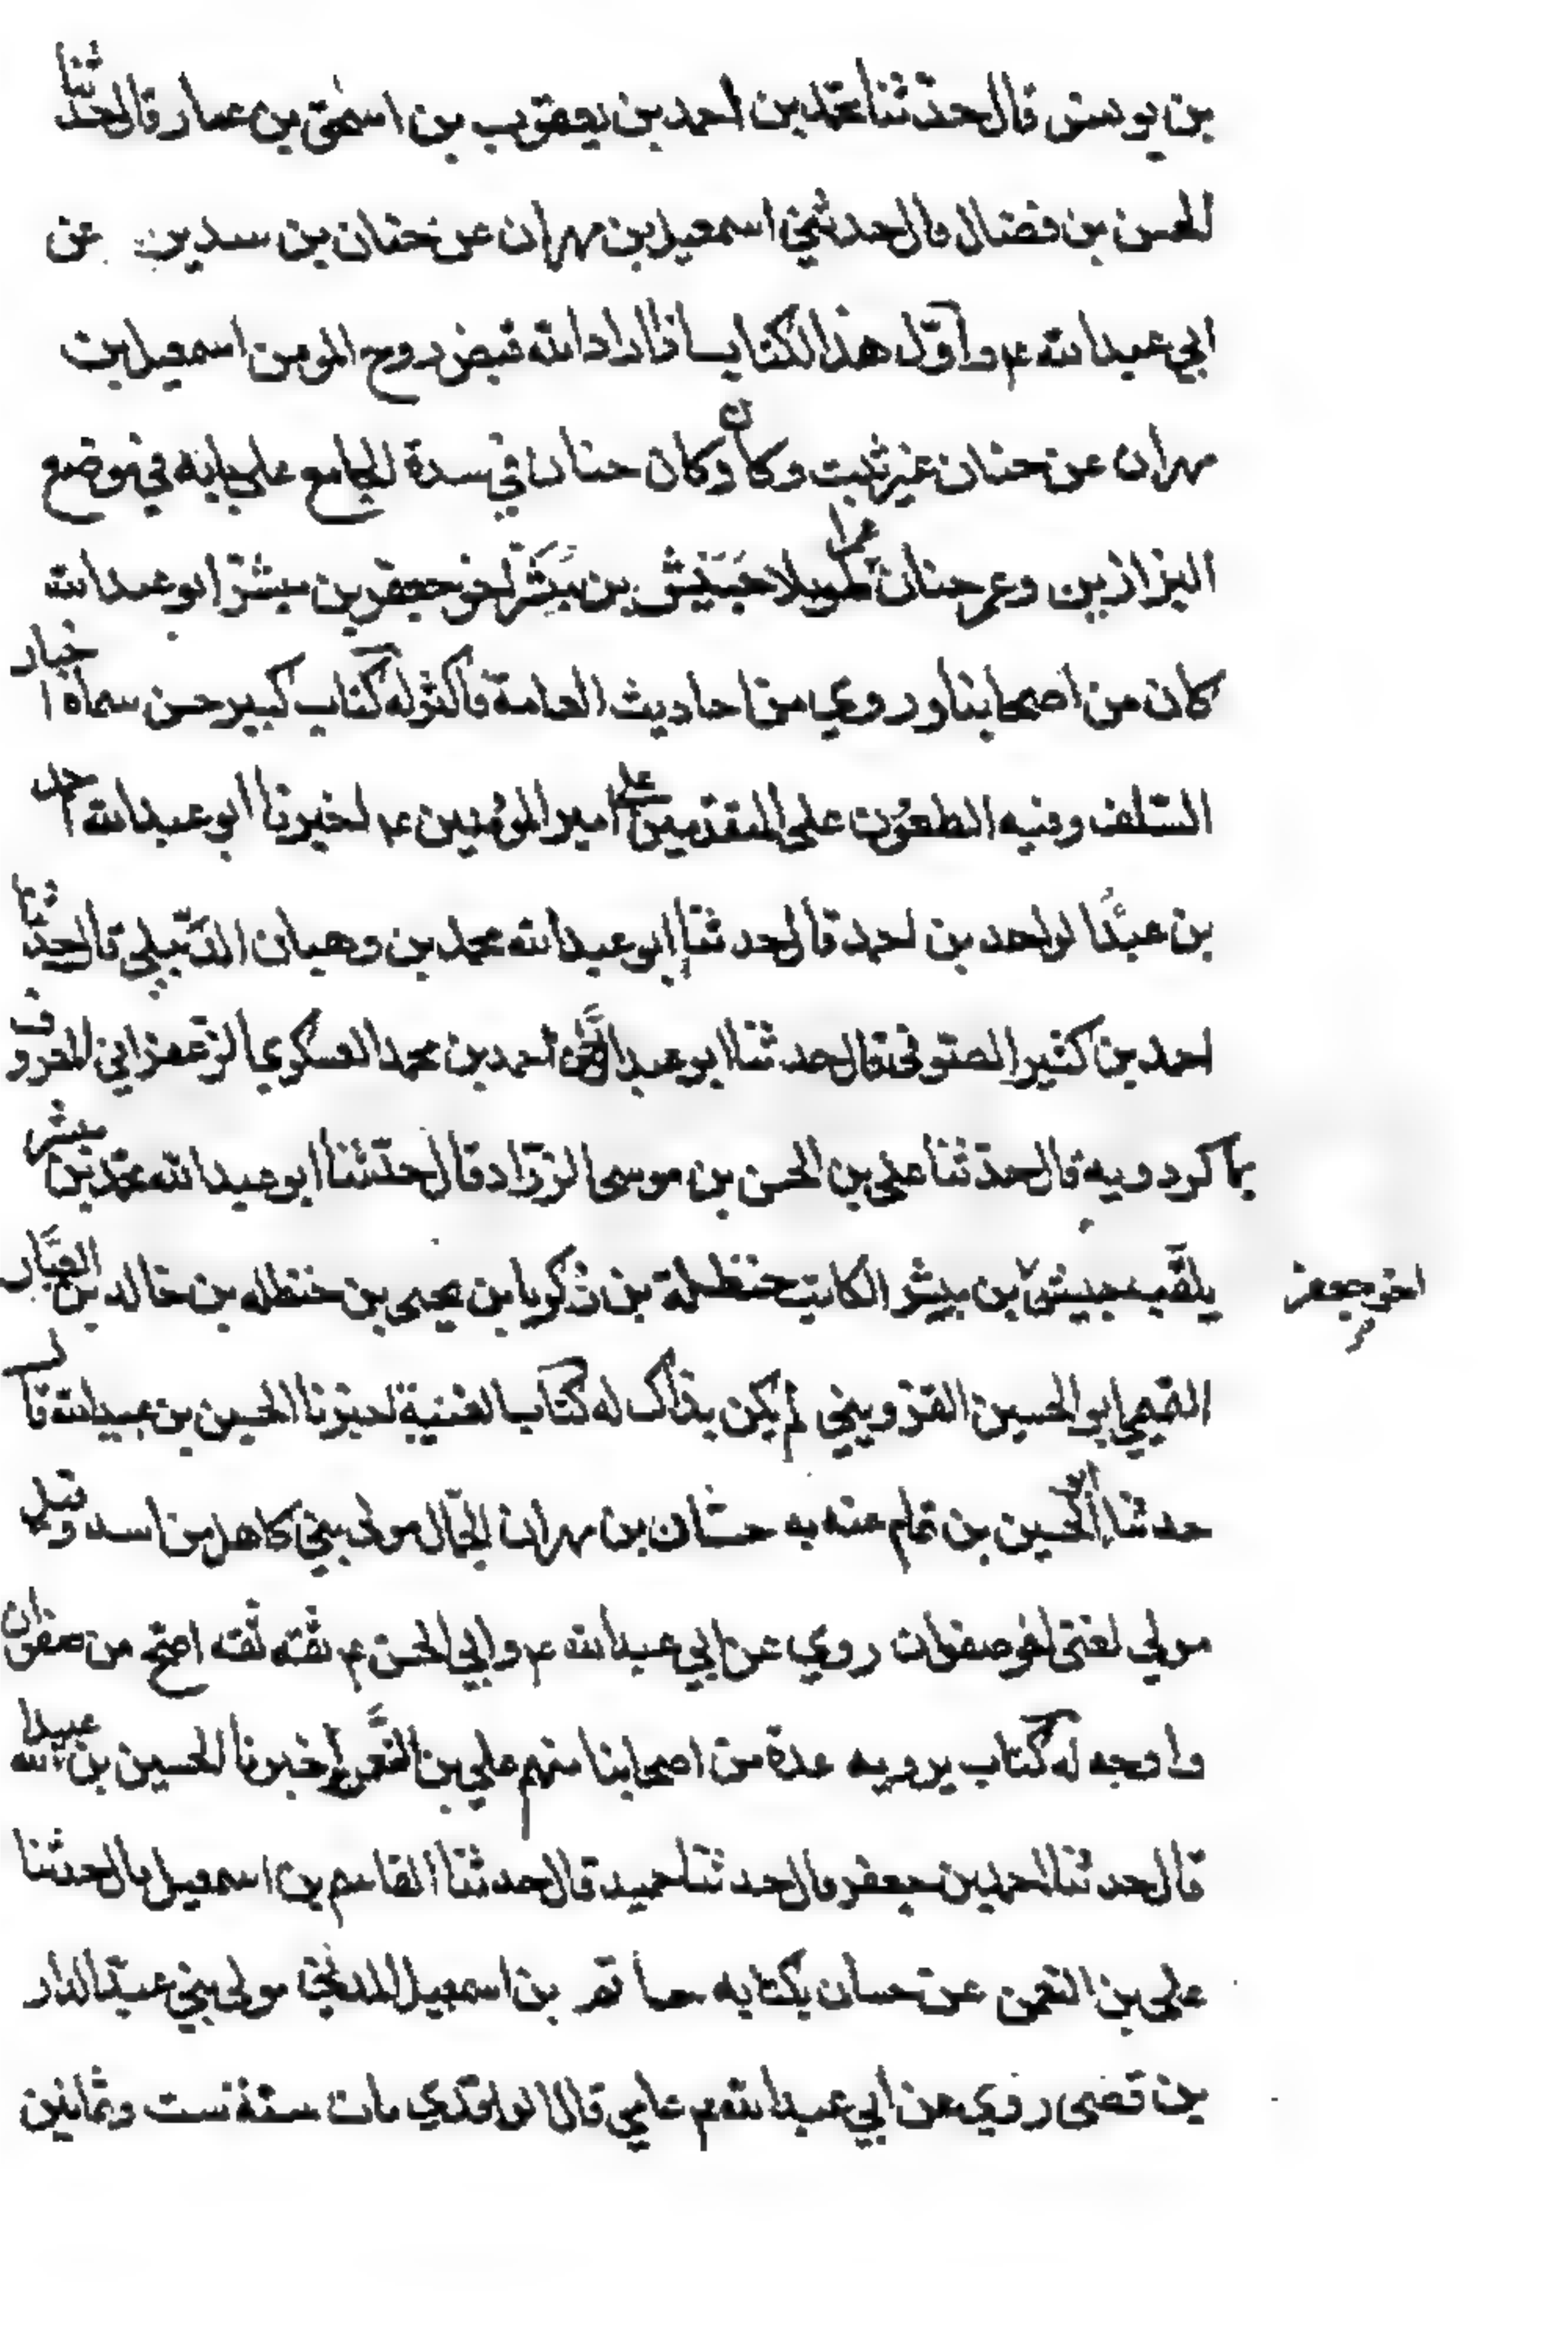 بن يونس قال حدثنا محمد بن احمد بن يعقوب بن اسحق بن عمار قال حدثنا
الحسن بن فضال قال حدثني اسمعيل بن مهران عن حنان بن سدير عن
ابي عبدالله ع واول هذا الكتاب اذا اراد الله قبض روح المومن اسمعيل بن
مهران عن حنان غير ثبت وكان وكان حنان في سدة الجامع على بابه في موضع
البزازين وعمر حنان عمرا طويلا حبيش بن مبشر اخو جعفر بن مبشر ابو عبدالله
كان من اصحابنا وروي من احاديث العامة فاكثر له كتاب كبير حسن سماه اخبار
السلف وفيه الطعون على المتقدمين على امير المؤمنين ع اخبرنا ابو عبدالله احمد
بن عبدالواحد بن احمد قال حدثنا ابو عبدالله محمد بن وهبان الدبيلي قال حدثنا
احمد بن كثير الصوفي قال حدثنا ابو عبدالرحمن احمد بن محمد العسكري الزعفراني المعروف
بماكردويه قال حدثنا علي بن الحسن بن موسى الزراد قال حدثنا ابو عبدالله محمد بن مبشر
يلقب حبيش بن مبشر الكاتب حنظلة بن زكريا بن يحيى بن حنظله بن خالد بن العيار
اخو جعفر
التميمي ابو الحسين القزويني لم يكن بذاك له كتاب الغيبة اخبرنا الحسين بن عبيدالله قال
حدثنا ابو الحسين بن تمام عنه به حسان بن مهران الجمال مولى بني كاهل من اسد وقيل
مولي لغنى اخو صفوان روي عن ابي عبدالله ع وابي الحسن ع ثقه ثقه اصح من صفوان
واوجه له كتاب يرويه عدة من اصحابنا منهم علي بن النعمن اخبرنا الحسين بن عبيدالله
قال حدثنا احمد بن جعفر قال حدثنا حميد قال حدثنا القاسم بن اسمعيل قال حدثنا
علي بن النعمن عن حسان بكتابه حاتم بن اسمعيل المدني مولى بني عبدالدار
بن قصى روي عن ابي عبدالله ع عامي قال الواقدي مات سنة ست وثمانين